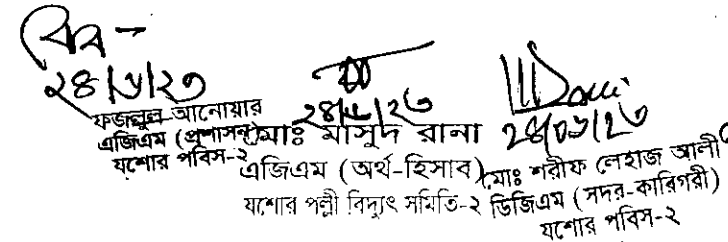 ২৪/৮/২৩
ফজলুল আনোয়ার
এজিএম (প্রশাসন)
যশোর পবিস-২
২৪/৮/২৩
মোঃ মাসুদ রানা
এজিএম (অর্থ-হিসাব)
যশোর পল্লী বিদ্যুৎ সমিতি-২
২৪/০৮/২৩
মোঃ শরীফ লেহাজ আলী
ডিজিএম (সদর-কারিগরী)
যশোর পবিস-২